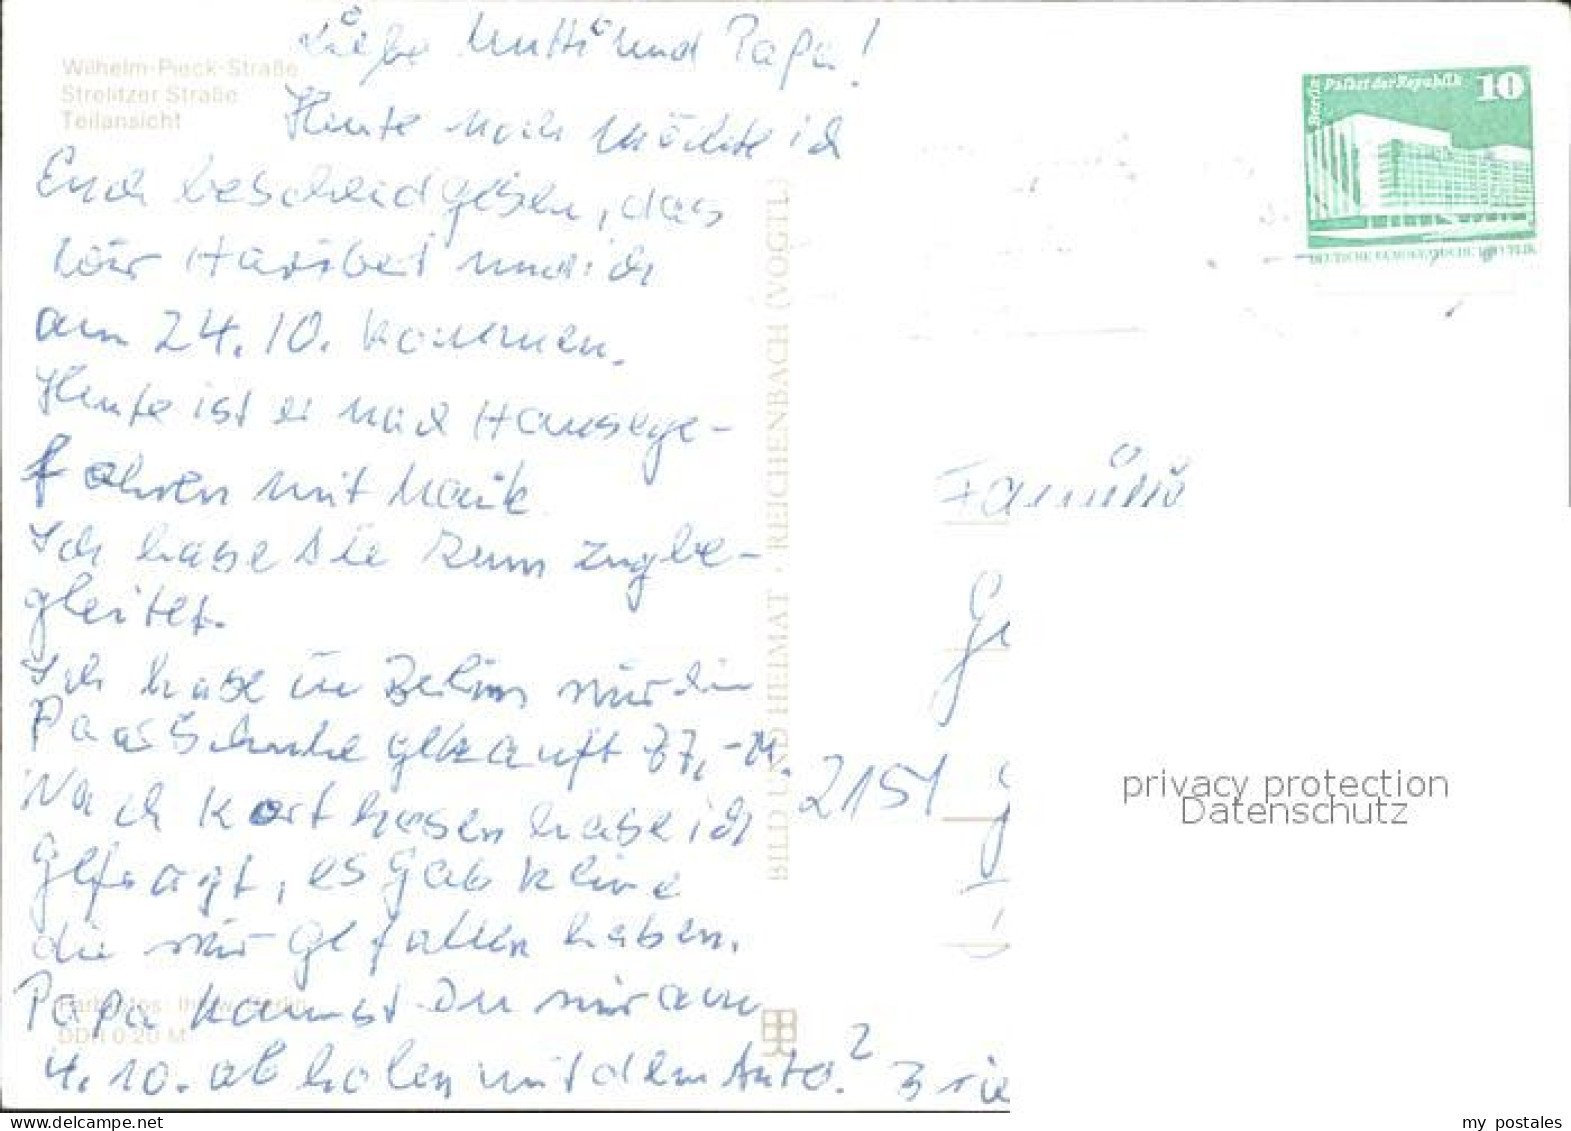 Wilhelm-Pieck-Straße
Strelitzer Straße
Teilansicht
Liebe Mutti und Papa!
Heute noch möchte ich
Euch bescheid geben, das
wir und ich
am 24.10. kommen.
Heute ist er nach Hausege-
fahren mit Maik
Ich habe sie zum zugbe-
gleitet.
Ich habe in Berlin mir ein
Paar Schuhe gekauft 37,-M.
Nach Korthosen habe ich
gefragt, es gab keine
die mir gefallen haben.
Papa kannst Du mir am
4.10. ab holen mit dem Auto?
BILD UND HEIMAT · REICHENBACH (VOGTL)
Berlin
Palast der Republik 10
DEUTSCHE DEMOKRATISCHE REPUBLIK
Familie
2151
privacy protection
Datenschutz
Berlin
DDR 0,20 M
www.delcampe.net
my_postales